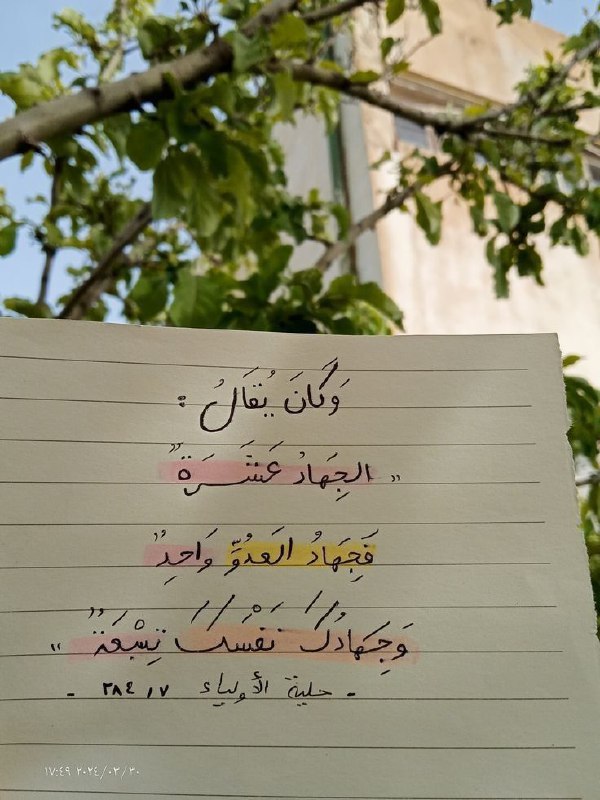 وَكَانَ يُقَالُ :
" الجِهَادُ عَشَرَةٌ
فَجِهَادُ العَدُوِّ وَاحِدٌ
وَجِهَادُكَ نَفْسَكَ تِسْعَةٌ "
- حلية الأولياء ٧ / ٢٨٤ -
١٧:٤٩ ٢٠٢٤/٠٣/٣٠